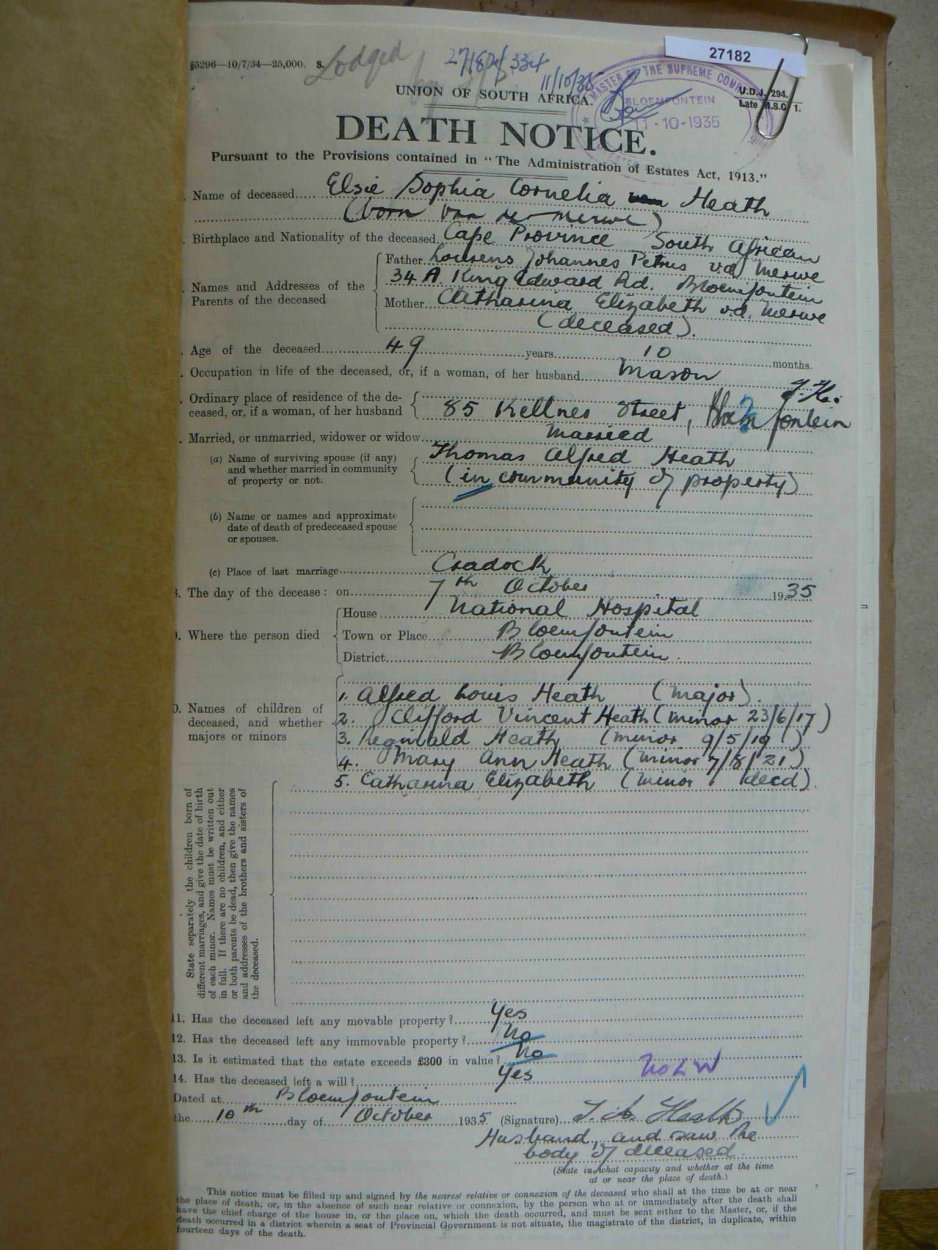 27182
§5296—10/7/34—25,000. S.
Lodged
27182/334
11/10/35
UNION OF SOUTH AFRICA.
U.D.J. 294.
Late M.S.C. 1.
MASTER OF THE SUPREME COURT
BLOEMFONTEIN
11-10-1935
DEATH NOTICE.
Pursuant to the Provisions contained in "The Administration of Estates Act, 1913."
Name of deceased Elsie Sophia Cornelia van Heath
(born van der Merwe)
Birthplace and Nationality of the deceased Cape Province South African
Names and Addresses of the Parents of the deceased
Father Lourens Johannes Petrus vd Merwe
34A King Edward Rd. Bloemfontein
Mother Catharina Elizabeth vd. Merwe
(deceased).
Age of the deceased 49 years 10 months.
Occupation in life of the deceased, or, if a woman, of her husband Mason
Ordinary place of residence of the de-
ceased, or, if a woman, of her husband
85 Kellner Street, Bloemfontein
Married, or unmarried, widower or widow married
(a) Name of surviving spouse (if any)
and whether married in community
of property or not.
Thomas Alfred Heath
(in community of property)
(b) Name or names and approximate
date of death of predeceased spouse
or spouses.
(c) Place of last marriage Cradock
The day of the decease: on 7th October 1935
Where the person died
House National Hospital
Town or Place Bloemfontein
District Bloemfontein.
Names of children of
deceased, and whether
majors or minors
1. Alfred Louis Heath (major).
2. Clifford Vincent Heath (minor 23/6/17)
3. Reginald Heath (minor 9/5/19)
4. Mary Ann Heath (minor 7/8/21)
5. Catharina Elizabeth (minor decd).
State separately the children born of
different marriages, and give the date of birth
of each minor. Names must be written out
in full. If there are no children, and either
or both parents be dead, then give the names
and addresses of the brothers and sisters of
the deceased.
11. Has the deceased left any movable property? Yes
12. Has the deceased left any immovable property? No
13. Is it estimated that the estate exceeds £300 in value? No
14. Has the deceased left a will? Yes
Dated at Bloemfontein
the 10th day of October 1935 (Signature) T. A. Heath
Husband, and saw the
body of deceased.
(State in what capacity and whether at the time
at or near the place of death.)
This notice must be filled up and signed by the nearest relative or connexion of the deceased who shall at the time be at or near
the place of death, or, in the absence of such near relative or connexion, by the person who at or immediately after the death shall
have the chief charge of the house in, or the place on, which the death occurred, and must be sent either to the Master, or, if the
death occurred in a district wherein a seat of Provincial Government is not situate, the magistrate of the district, in duplicate, within
fourteen days of the death.